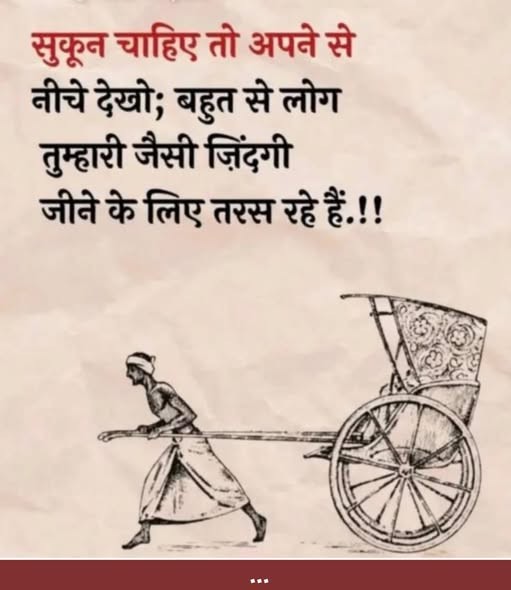 सुकून चाहिए तो अपने से
नीचे देखो; बहुत से लोग
तुम्हारी जैसी ज़िंदगी
जीने के लिए तरस रहे हैं.!!
...